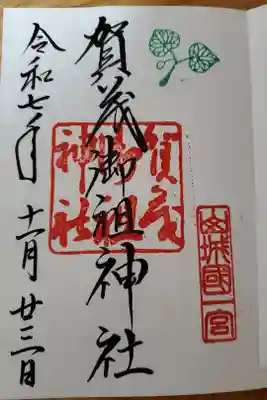 山城國一宮
賀茂御祖神社
賀茂御祖神社
令和七年十一月廿三日